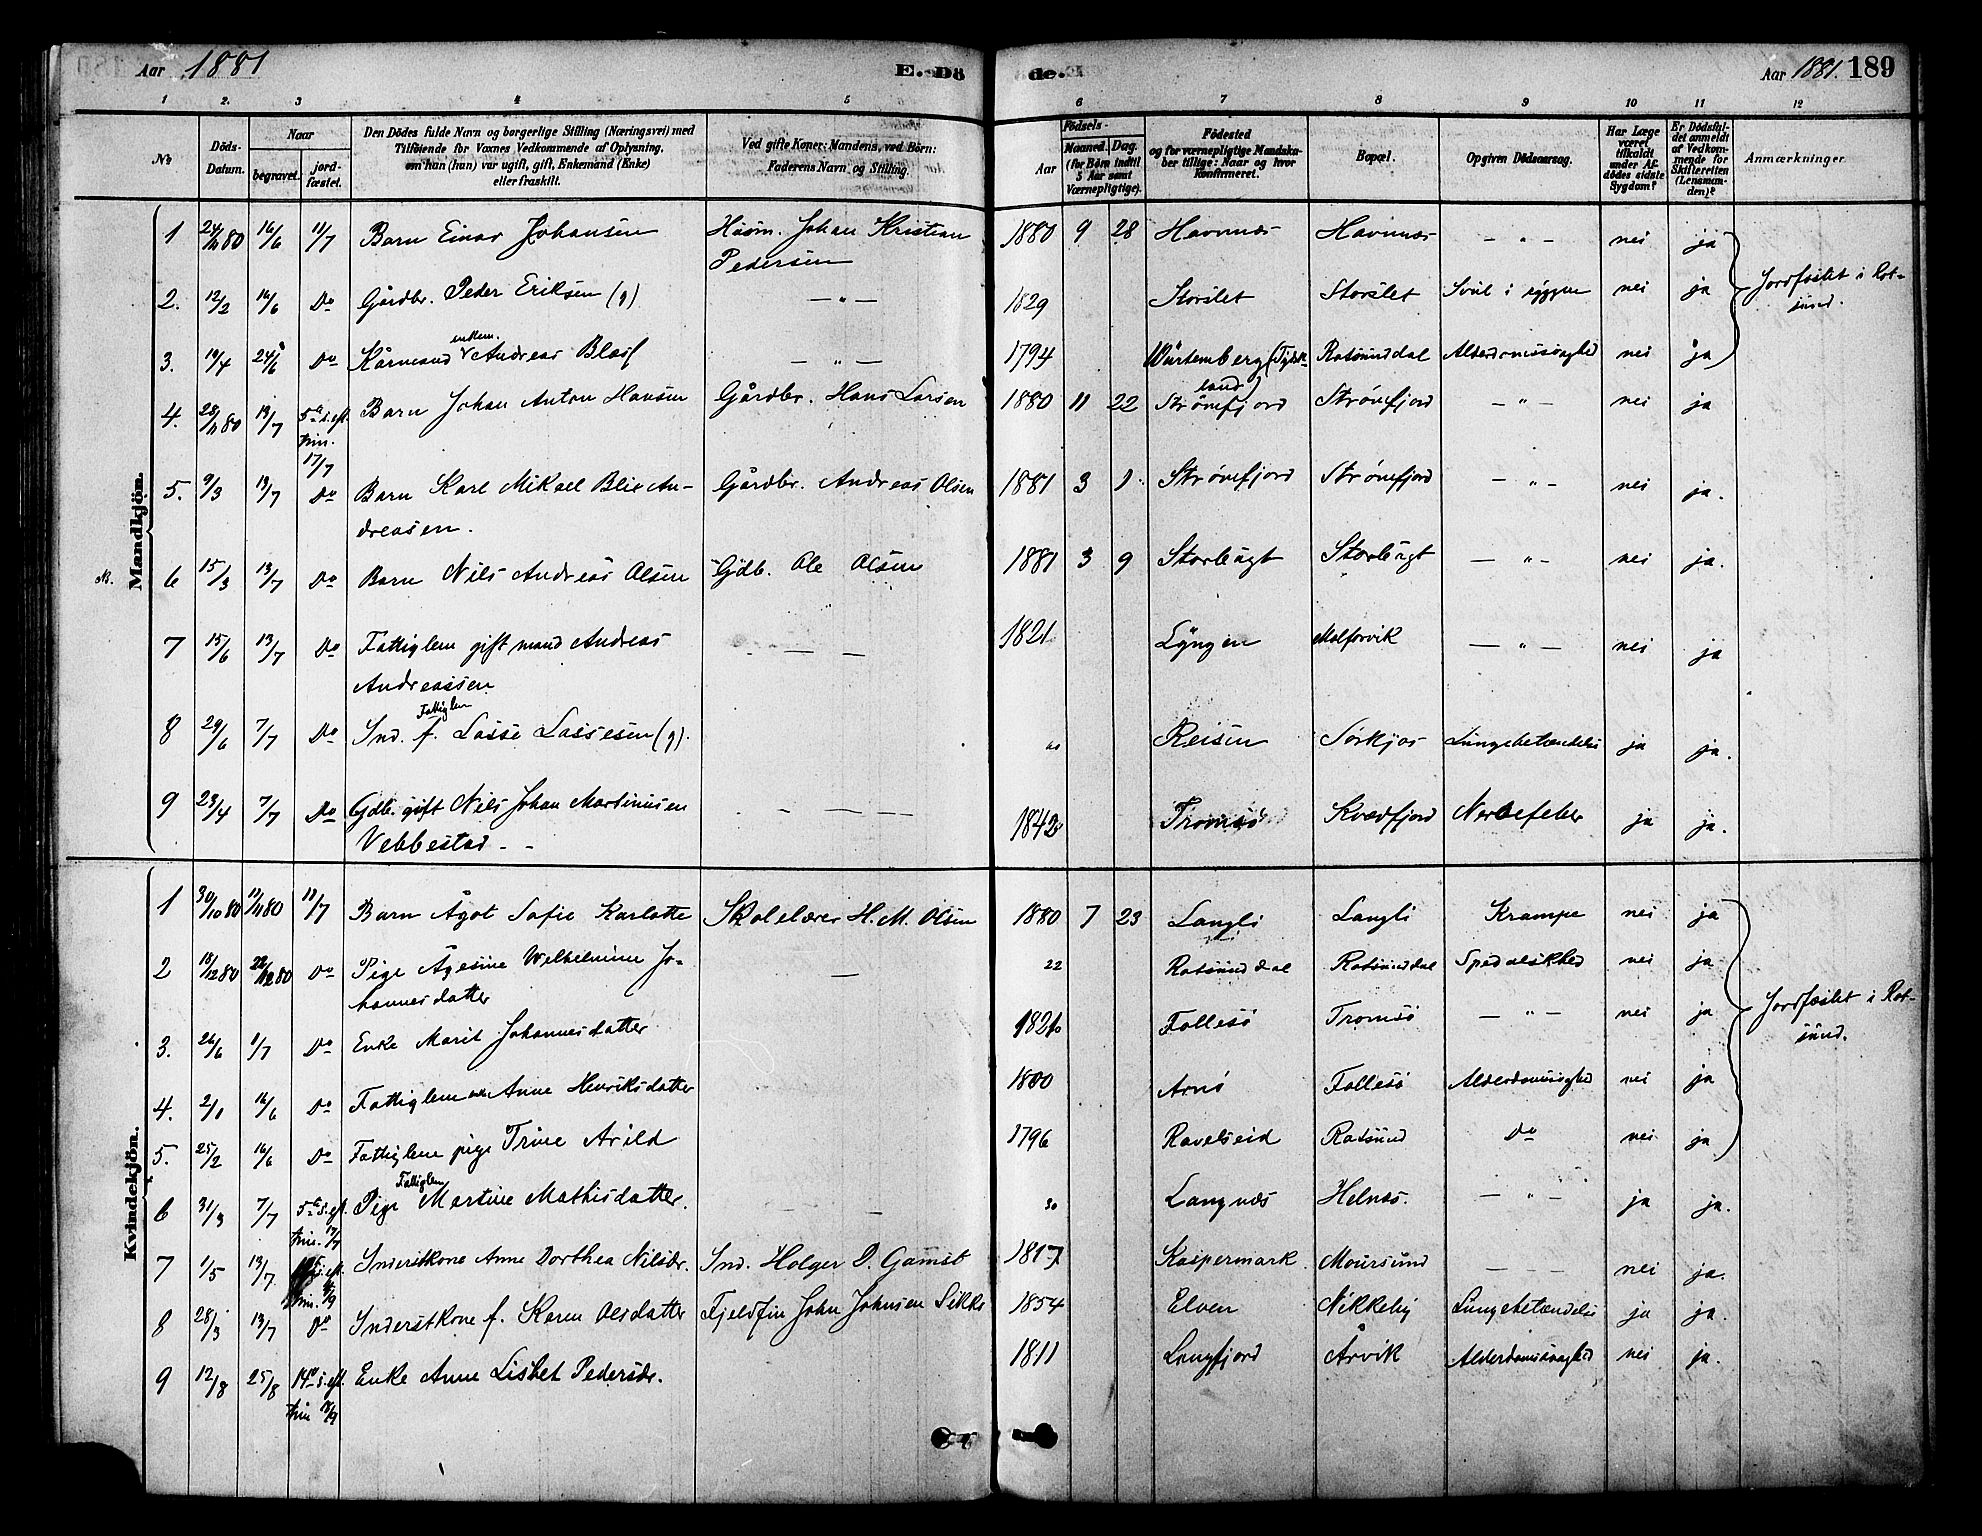 Aar 1881
E. Dö
de.
Aar 1881. 189
1 2. 3 4 5 6 7 8 9 10 11 12
No
Döds-Datum.
Naar
begravet.
jord-fæstet.
Den Dödes fulde Navn og borgerlige Stilling (Næringsvei) med
Tilföiende for Voxnes Vedkommende af Oplysning,
om han (han) var ugift, gift, Enkemand (Enke)
eller fraskilt.
Ved gifte Koner: Mandens, ved Börn:
Faderens Navn og Stilling.
Födsels-
Aar
Maaned. Dag.
(for Börn indtil
5 Aar samt
Værnepligtige).
Födested
og for værnepligtige Mandska-
ber tillige: Naar og hvor
Konfirmeret.
Bopæl.
Opgiven Dödsaarsag.
Har Læge
været
tilkaldt
under Af-
dödes sidste
Sygdom?
Er Dödsfal-
det anmeldt
af Vedkom-
mende for
Skifteretten
(Lensman-
den)?
Anmærkninger.
Mandkjön.
1 24/11 80 16/6 11/7 Barn Einar Johansen Husm. Johan Kristian 1880 9 28 Havnnæs Havnnæs — " — nei ja
Pedersen
2. 12/2 16/6 Do Gårdbr. Peder Eriksen (g) — " — 1829 Storslet Storslet Svul i ryggen nei ja Jordfæstet i Rot-
sund.
enkem.
3. 19/4 24/6 Do Kårmand Andreas Blasf — " — 1794 Würtemberg (Tydsk- Rotsunddal Alderdomssvaghed nei ja
land)
4. 28/11 80 13/7 5te s. eft. Barn Johan Anton Hansen Gårdbr. Hans Larsen 1880 11 22 Strømfjord Strømfjord — " — nei ja
trin.
17/7
5. 9/3 13/7 Do Barn Karl Mikael Blix An- Gårdbr. Andreas Olsen 1881 3 1 Strømfjord Strømfjord — " — nei ja.
dreasen.
6 15/3 13/7 Do Barn Nils Andreas Olsen Gdb. Ole Olsen 1881 3 9 Storbugt Storbugt — " — nei ja.
7 15/6 13/7 Do Fattiglem gift mand Andreas — — 1821 Lyngen Malforvik — " — nei ja
Andreassen
Fattiglem
8 29/6 7/7 Do Ind. f. Lasse Lassesen (g). " Reisen Sørkjos Lungebetændelse ja ja.
9 23/4 7/7 Do Gdb. gift Nils Johan Martinusen — — — 1842 Tromsö Kvædfjord Nervefeber ja ja.
Vebbestad - -
Kvindekjön.
1 30/10 80 12/11 80 11/7 Barn Ågot Sofie Karlotte Skolelærer H. M. Olsen 1880 7 23 Langli Langli Krampe nei ja
2 18/12 80 22/12 80 Do Pige Ågesine Welhelmine Jo- — 22 Rotsunddal Rotsunddal Spedalskhed nei ja
hannesdatter
Jordfæstet i Rot-
sund.
3. 26/6 1/7 Do Enke Marit Johannesdatter 1820 Follesö Tromsö — " — nei ja
4. 2/1 16/6 Do Fattiglem Anne Henriksdatter 1800 Arnö Follesö Alderdomssvaghed nei ja
5. 25/2 16/6 Do Fattiglem pige Trine Arild 1796 Ravelseid Rotsund Do nei ja
Fattiglem
6 31/3 7/7 5te s. eft. Pige Martine Mathisdatter. — — 30 Langnæs Helnæs. — " — ja ja.
trin. 17/7
7 1/5 13/7 Inderstkone Anne Dorthea Nilsdr. Ind. Holger D. Gamst 1817 Kaspermark Moursund — — — nei ja.
8 28/3 13/7 Do Inderstkone f. Karen Olsdatter Fjeldfin John Johnsen Sikke 1854 Elven Nikkeby Lungebetændelse ja ja.
9 12/8 25/8 14de s. eft. Enke Anne Lisbet Pedersdr. 1811 Langfjord Årvik Alderdomssvaghed nei ja.
trin 18/9